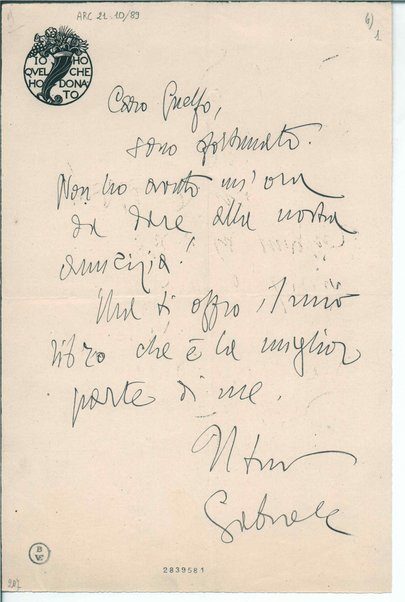 ARC 21.10/89
6)
1
IO HO
QVEL CHE
HO DONA
TO
Caro Guelfo,
sono sfortunato.
Non ho avuto un'ora
da dare alla nostra
amicizia.
Ma ti offro il mio
libro che è la miglior
parte di me.
Il tuo
Gabriele
B
VE
2839581
207